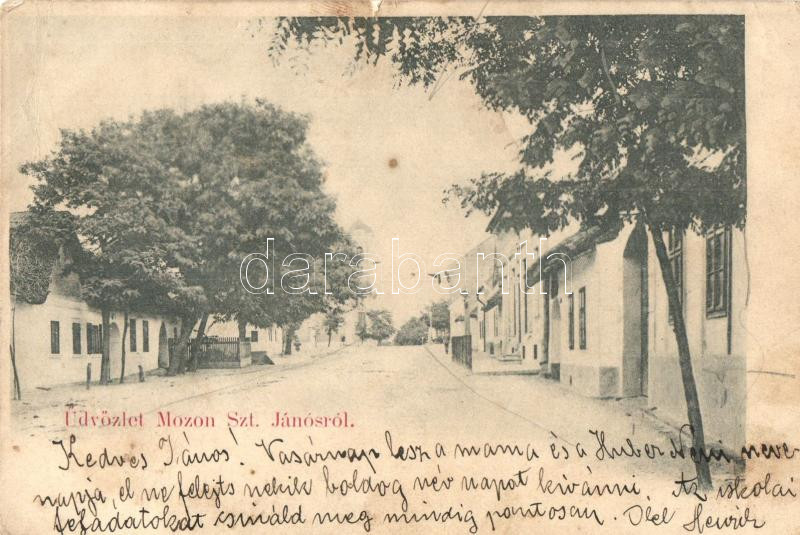 darabanth
Üdvözlet Mozon Szt. Jánósról.
Kedves János! Vasárnap lesz a mama és a Huber Neni neve
napja, el ne felejts nekik boldog név napat kivánni. Az iskolai
feladatokat csináld meg mindig pontosan. Ölel Henrik